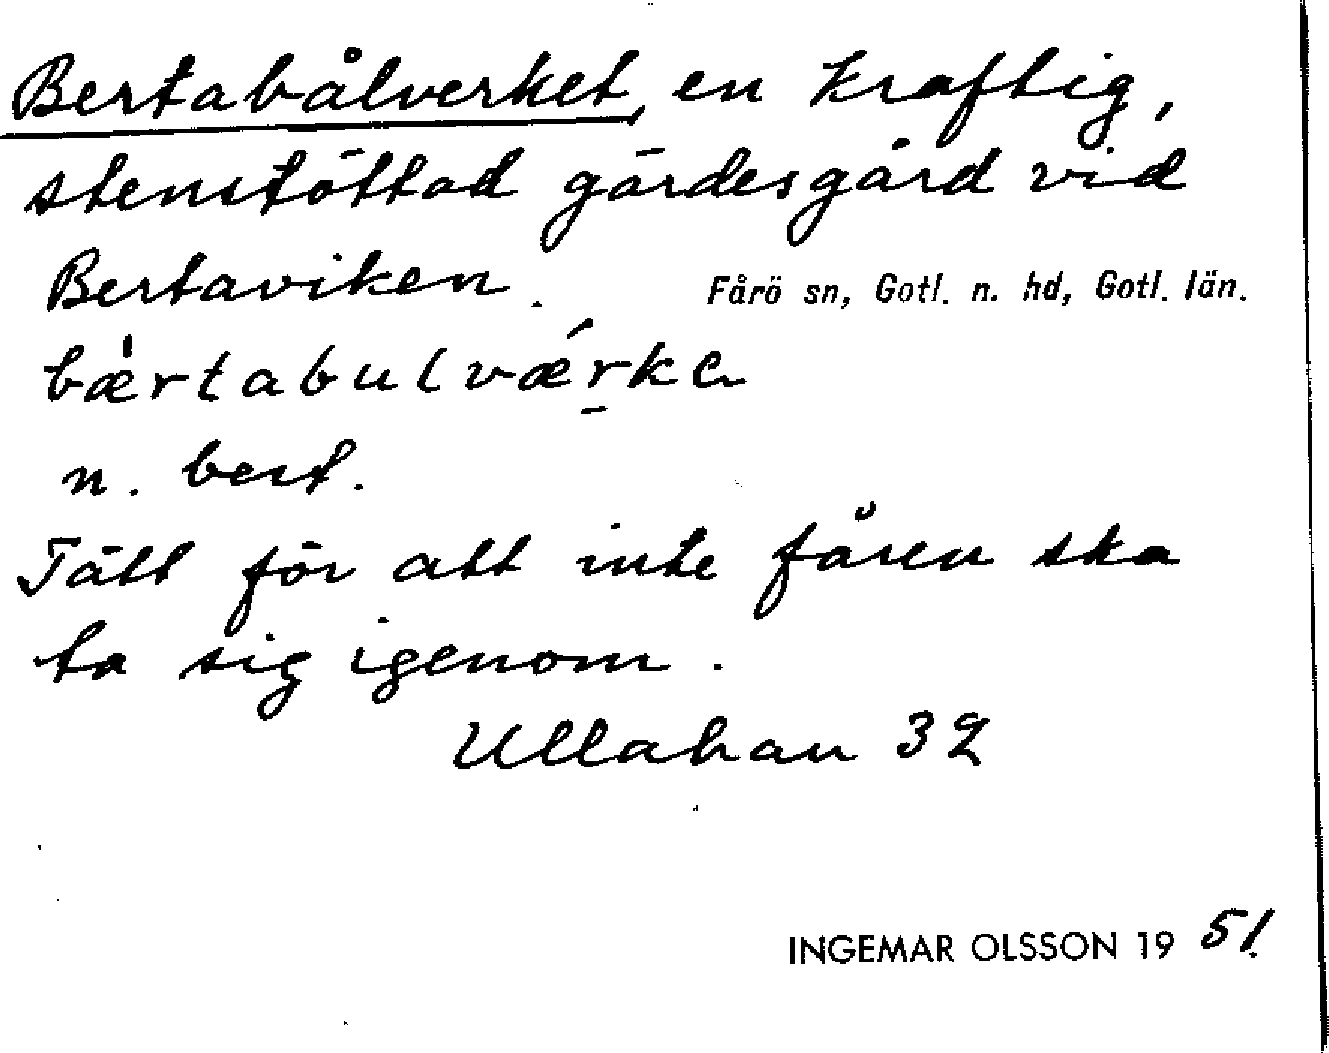 Bertabålverket, en kraftig,
stenstöttad gärdesgård vid
Bertaviken. Fårö sn, Gotl. n. hd, Gotl. län.
bæ̀rtabulvǽrkə
n. best.
Tätt för att inte fåren ska
ta sig igenom.
Ullahau 32
INGEMAR OLSSON 19 51.